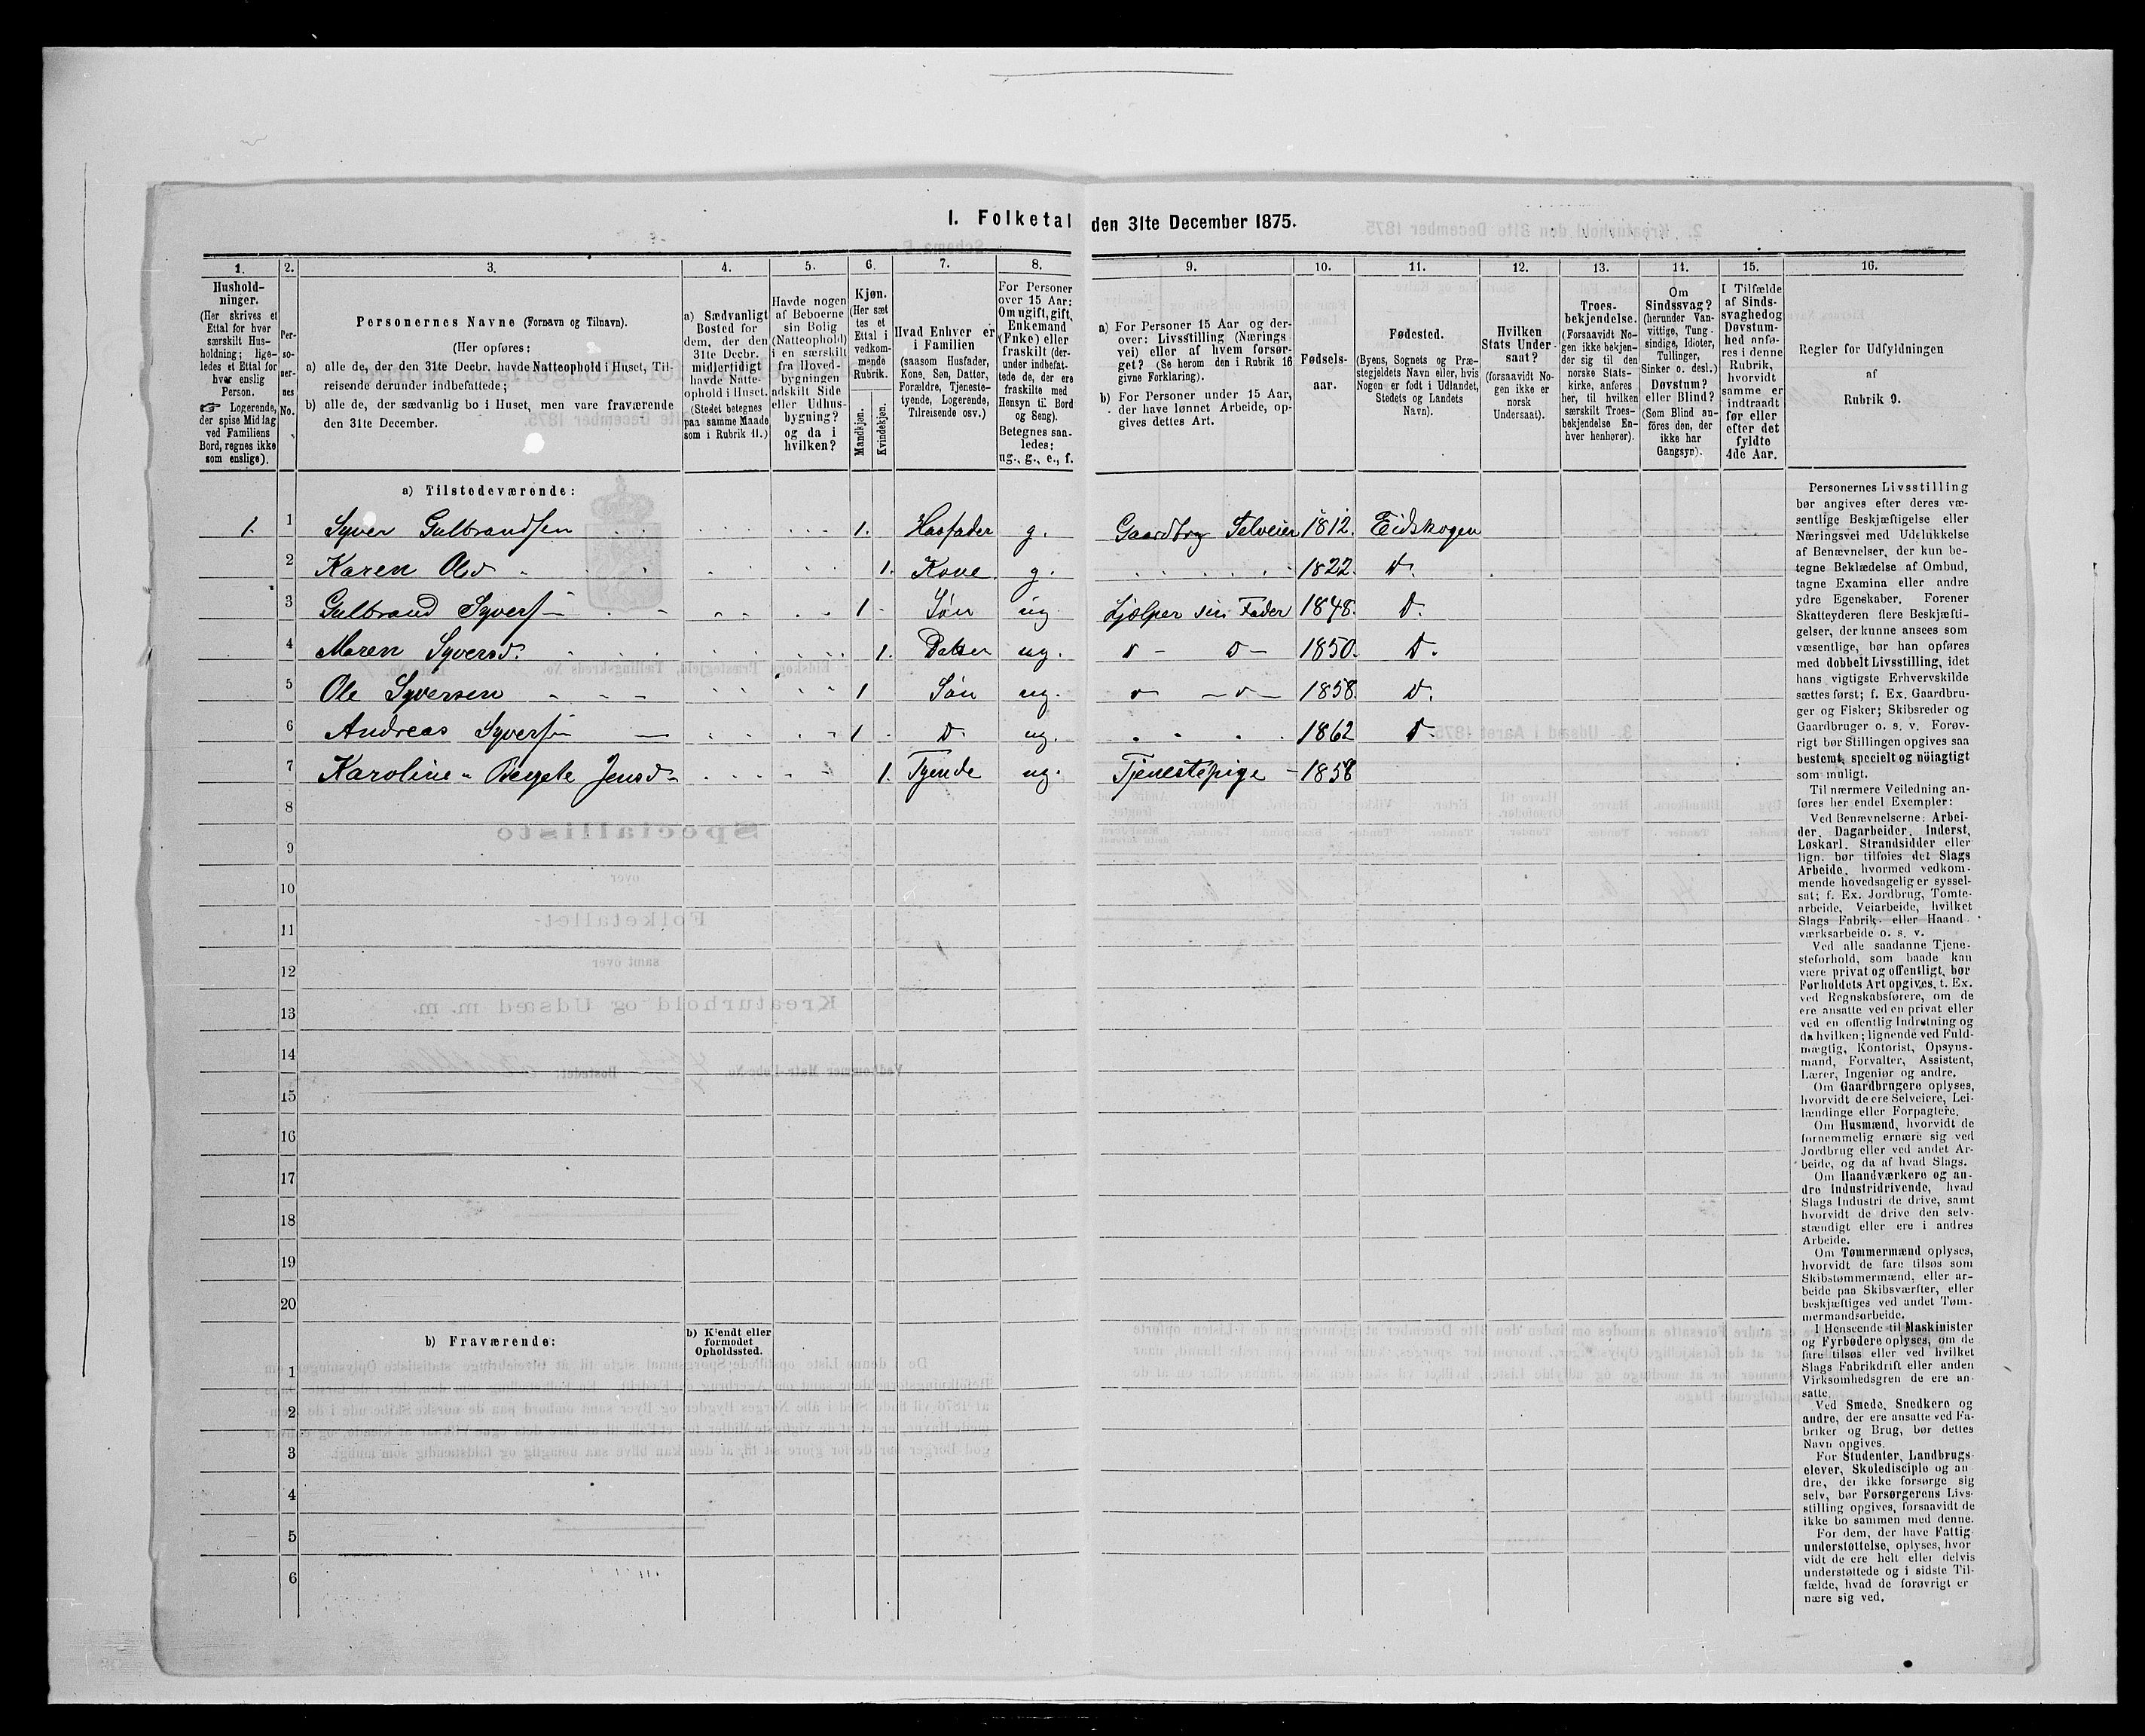 I. Folketal den 31te December 1875.
1. 2. 3. 4. 5. 6. 7. 8. 9. 10. 11. 12. 13. 14. 15. 16.
Hushold-
ninger.
(Her skrives et
Ettal for hver
særskilt Hus-
holdning; lige-
ledes et Ettal for
hver enslig
Person.
☞ Logerende,
der spise Middag
ved Familiens
Bord, regnes ikke
som enslige).
Per-
so-
ner-
nes
No.
Personernes Navne (Fornavn og Tilnavn).
(Her opføres:
a) alle de, der den 31te Decbr. havde Natteophold i Huset, Til-
reisende derunder indbefattede;
b) alle de, der sædvanlig bo i Huset, men vare fraværende
den 31te December.
a) Sædvanligt
Bosted for
dem, der den
31te Decbr.
midlertidigt
havde Natte-
ophold i Huset.
(Stedet betegnes
paa samme Maade
som i Rubrik 11.)
Havde nogen
af Beboerne
sin Bolig
(Natteophold)
i en særskilt
fra Hoved-
bygningen
adskilt Side
eller Udhus-
bygning?
og da i
hvilken?
Kjøn.
(Her sæt
tes et
Ettal i
vedkom-
mende
Rubrik.
Mandkjøn.
Kvindekjøn.
Hvad Enhver er
i Familien
(saasom Husfader,
Kone, Søn, Datter,
Forældre, Tjeneste-
tyende, Logerende,
Tilreisende osv.)
For Personer
over 15 Aar:
Om ugift, gift,
Enkemand
(Enke) eller
fraskilt (der-
under indbefat-
tede de, der ere
fraskilte med
Hensyn til Bord
og Seng).
Betegnes saa-
ledes:
ug., g., e., f.
a) For Personer 15 Aar og der-
over: Livsstilling (Nærings
vei) eller af hvem forsør-
get? (Se herom den i Rubrik 16
givne Forklaring).
b) For Personer under 15 Aar,
der have lønnet Arbeide, op-
gives dettes Art.
Fødsels-
aar.
Fødested.
(Byens, Sognets og Præ-
stegjeldets Navn eller, hvis
Nogen er født i Udlandet,
Stedets og Landets
Navn).
Hvilken
Stats Under-
saat?
(forsaavidt No-
gen ikke er
norsk
Undersaat).
Troes-
bekjendelse.
(Forsaavidt No-
gen ikke bekjen-
der sig til den
norske Stats-
kirke, anføres
her, til hvilken
særskilt Troes-
bekjendelse En-
hver henhører).
Om
Sindssvag?
(herunder Van-
vittige, Tung-
sindige, Idioter,
Tullinger,
Sinker o. desl.)
Døvstum?
eller Blind?
(Som Blind an-
føres den, der
ikke har
Gangsyn).
I Tilfælde
af Sinds-
svaghed og
Døvstum-
hed anfø-
res i denne
Rubrik,
hvorvidt
samme er
indtraadt
før eller
efter det
fyldte
4de Aar.
Regler for Udfyldningen
af
Rubrik 9.
a) Tilstedeværende:
1. 1 Syver Gulbrandsen 1. Husfader g. Gaardbrg Selveier 1812. Eidskogen
2 Karen Olsd 1. Kone. g. 1822. D.
3 Gulbrand Syvers 1 Søn ug Hjælper sin Fader 1848. D.
4 Maren Syversd. 1. Datter ug. D D 1850. D.
5 Ole Syversen 1 Søn ug. D D 1858. D.
6 Andreas Syvers 1 D ug. 1862 D
7 Karoline Bergete Jensd 1. Tyende ug. Tjenestepige 1858
8
9
10
11
12
13
14
15
16
17
18
19
20
b) Fraværende:
b) Kjendt eller
formodet
Opholdssted.
1
2
3
4
5
6
Personernes Livsstilling
bør angives efter deres væ-
sentlige Beskjæftigelse eller
Næringsvei med Udelukkelse
af Benævnelser, der kun be-
tegne Beklædelse af Ombud,
tagne Examina eller andre
ydre Egenskaber. Forener
Skatteyderen flere Beskjæfti-
gelser, der kunne ansees som
væsentlige, bør han opføres
med dobbelt Livsstilling, idet
hans vigtigste Erhvervskilde
sættes først; f. Ex. Gaardbru-
ger og Fisker; Skibsreder og
Gaardbruger o. s. v. Forøv-
rigt bør Stillingen opgives saa
bestemt, specielt og nöiagtigt
som muligt.
Til nærmere Veiledning an-
føres her endel Exempler:
Ved Benævnelserne: Arbei-
der, Dagarbeider, Inderst,
Løskarl, Strandsidder eller
lign. bør tilføies det Slags
Arbeide, hvormed vedkom-
mende hovedsagelig er syssel-
sat; f. Ex. Jordbrug, Tomte-
arbeide, Veiarbeide, hvilket
Slags Fabrik- eller Haand-
værksarbeide o. s. v.
Ved alle saadanne Tjene-
steforhold, som baade kan
være privat og offentligt, bør
Forholdets Art opgives, t. Ex.
ved Regnskabsførere, om de
ere ansatte ved en privat eller
ved en offentlig Indretning og
da hvilken; lignende ved Fuld-
mægtig, Kontorist, Opsyns-
mand, Forvalter, Assistent,
Lærer, Ingeniør og andre.
Om Gaardbrugere oplyses,
hvorvidt de ere Selveiere, Lei-
lændinge eller Forpagtere.
Om Husmænd, hvorvidt de
fornemmelig ernære sig ved
Jordbrug eller ved andet Ar-
beide, og da af hvad Slags.
Om Haandværkere og an-
dre Industridrivende, hvad
Slags Industri de drive, samt
hvorvidt de drive den selv-
stændigt eller ere i andres
Arbeide.
Om Tømmermænd oplyses,
hvorvidt de fare tilsøs som
Skibstømmermænd, eller ar-
beide paa Skibsværfter, eller
beskjæftiges ved andet Tøm-
mermandsarbeide.
I Henseende til Maskinister
og Fyrbødere oplyses, om de
fare tilsøs eller ved hvilket
Slags Fabrikdrift eller anden
Virksomhedsgren de ere an-
satte.
Ved Smede, Snedkere og
andre, der ere ansatte ved Fa-
briker og Brug, bør dettes
Navn opgives.
For Studenter, Landbrugs-
elever, Skoledisciple og an-
dre, der ikke forsørge sig
selv, bør Forsørgerens Livs-
stilling opgives, forsaavidt de
ikke bo sammen med denne.
For dem, der have Fattig-
understøttelse, oplyses, hvor
vidt de ere helt eller delvis
understøttede og i sidste Til-
fælde, hvad de forøvrigt er
nære sig ved.